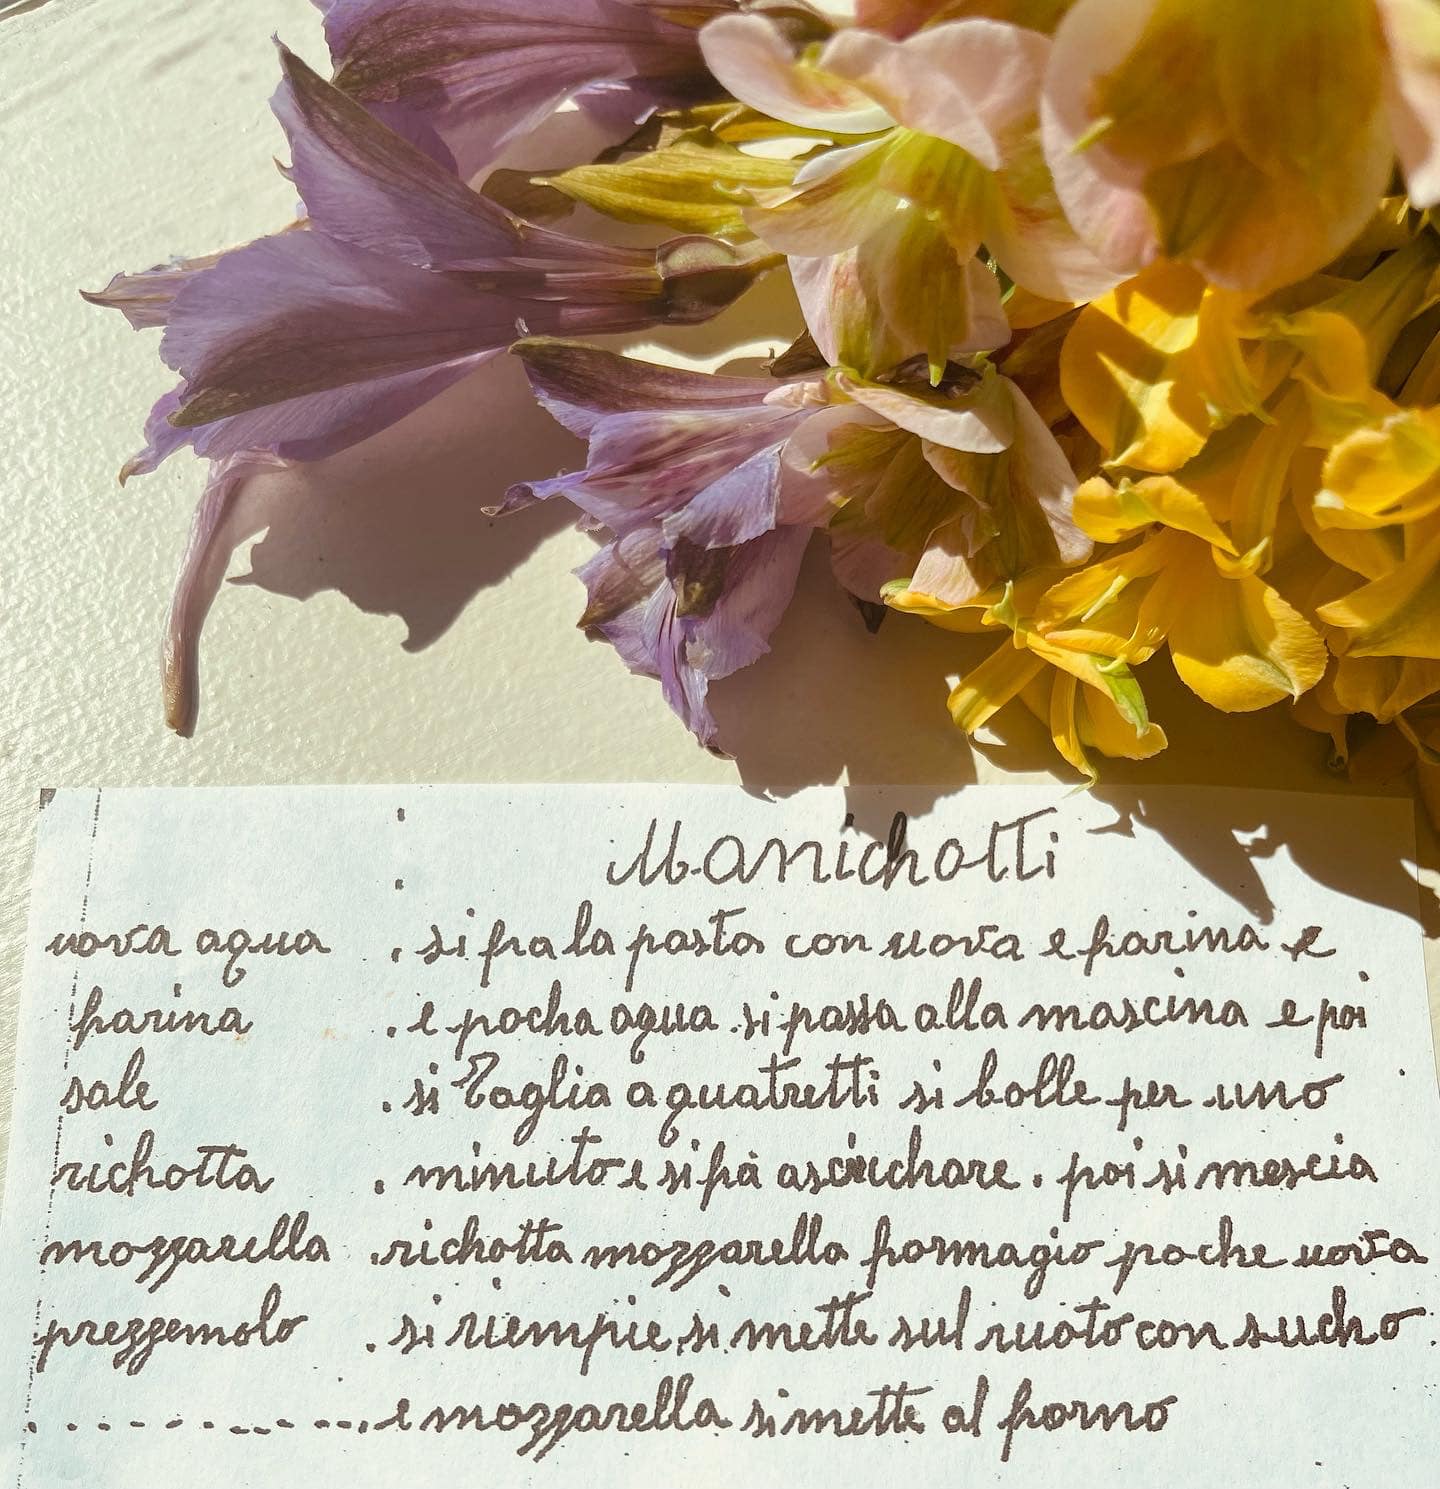 Manichotti
uova aqua . si fa la pasta con uova e farina e
farina . e pocha aqua . si passa alla mascina e poi
sale . si Taglia a quatretti si bolle per uno
richotta . minuto e si fà asciuchare . poi si mescia
mozzarella . richotta mozzarella formagio poche uova
prezzemolo . si riempie, si mette sul ruoto con sucho
e mozzarella si mette al forno